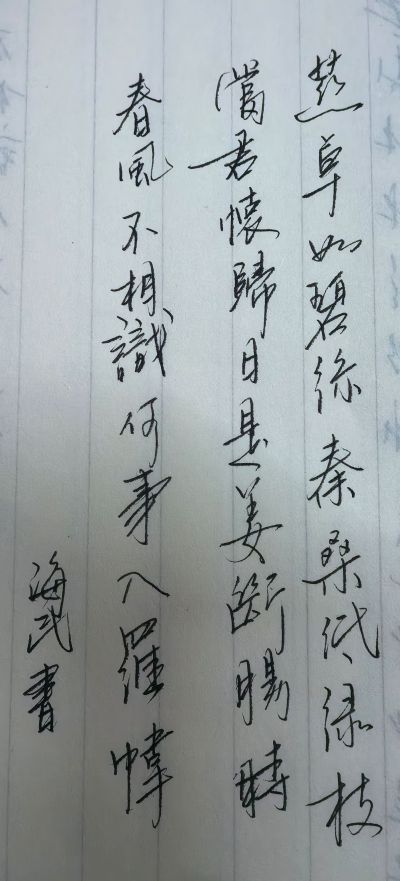 燕草如碧絲秦桑低綠枝
當君懷歸日是妾斷腸時
春風不相識何事入羅幃
海武書